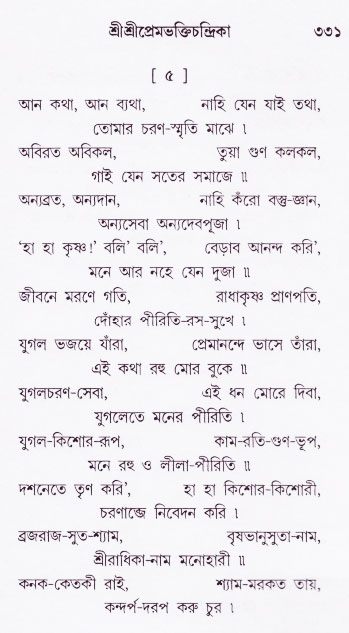 শ্রীশ্রীপ্রেমভক্তিচন্দ্রিকা ৩৩১
[ ৫ ]
আন কথা, আন ব্যথা, নাহি যেন যাই তথা,
তোমার চরণ-স্মৃতি মাঝে ।
অবিরত অবিকল, তুয়া গুণ কলকল,
গাই যেন সতের সমাজে ॥
অন্যব্রত, অন্যদান, নাহি কঁরো বস্তু-জ্ঞান,
অন্যসেবা অন্যদেবপূজা ।
‘হা হা কৃষ্ণ!’ বলি’ বলি’, বেড়াব আনন্দ করি’,
মনে আর নহে যেন দুজা ॥
জীবনে মরণে গতি, রাধাকৃষ্ণ প্রাণপতি,
দোঁহার পীরিতি-রস-সুখে ।
যুগল ভজয়ে যাঁরা, প্রেমানন্দে ভাসে তাঁরা,
এই কথা রহু মোর বুকে ॥
যুগলচরণ-সেবা, এই ধন মোরে দিবা,
যুগলেতে মনের পীরিতি ।
যুগল-কিশোর-রূপ, কাম-রতি-গুণ-ভূপ,
মনে রহু ও লীলা-পীরিতি ॥
দশনেতে তৃণ করি’, হা হা কিশোর-কিশোরী,
চরণাব্জে নিবেদন করি ।
ব্রজরাজ-সুত-শ্যাম, বৃষভানুসুতা-নাম,
শ্রীরাধিকা-নাম মনোহারী ॥
কনক-কেতকী রাই, শ্যাম-মরকত তায়,
কন্দর্প-দরপ করু চুর ।